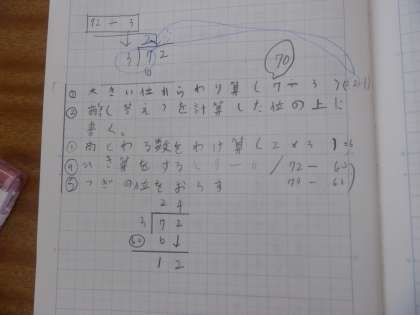 72 ÷ 3
3 7 2
70
① 大きい位からわり算(7÷3
② 商(答え)を計算した位の上に
書く。
③ 商とわる数をかけ算(2×3)=6
④ ひき算をする 72-60
⑤ つぎの位をおろす
2 4
3 7 2
60 6 ↓
1 2